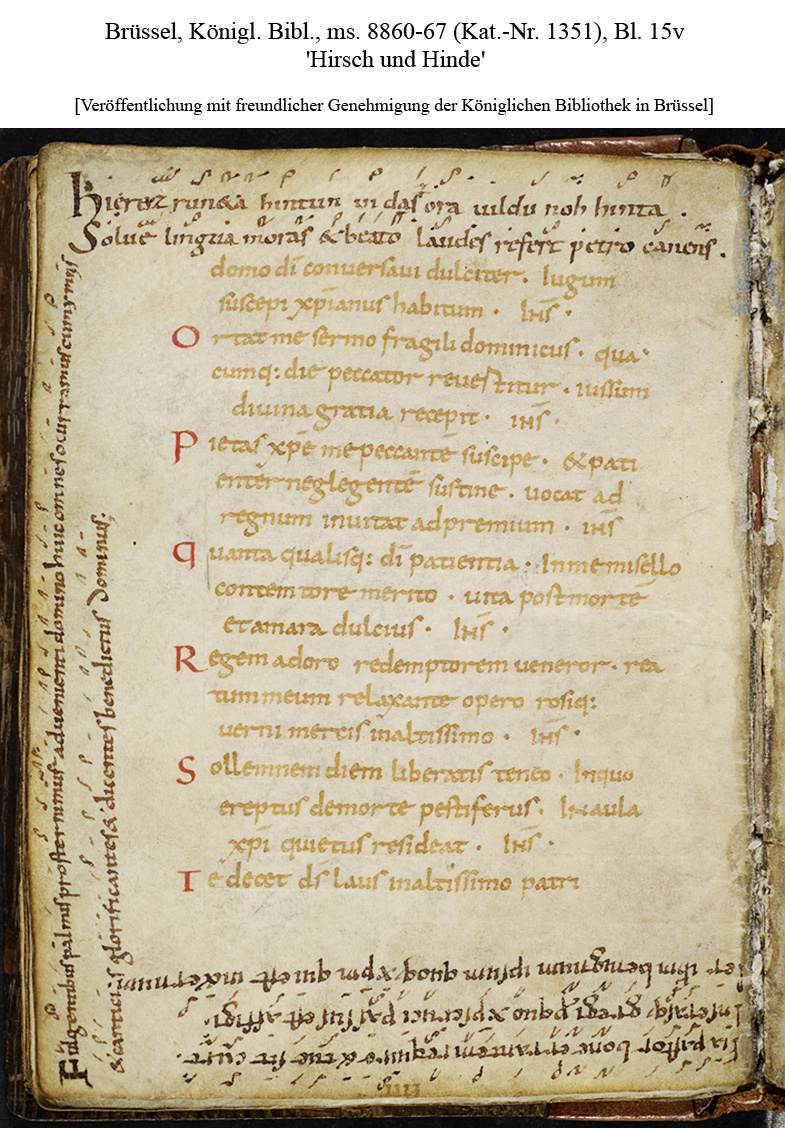 Brüssel, Königl. Bibl., ms. 8860-67 (Kat.-Nr. 1351), Bl. 15v
'Hirsch und Hinde'
[Veröffentlichung mit freundlicher Genehmigung der Königlichen Bibliothek in Brüssel]
hirez runeta hintun in das ora uildu noh hinta .
Solue lingua moras & beato laudes refert petro canens .
domo dī conversaui dulciter . Iugum
suscepi xp̄ianus habitum . Ihs̄ .
Ortat me sermo fragili dominicus . qua
cumq: die peccator revestitur . iussum
divina gratia recepit . ihs̄ .
Pietas xp̄e me peccantē suscipe . & pati
enter neglegentē sustine . uocat ad
regnum inuitat ad premium . ihs̄
Quanta qualisq: dī patientia . In me misello
contemtore merito . uita post mortē
et amara dulcius . Ihs̄ .
Regem adoro redemptorem ueneror . rea
tum meum relaxante opero rosiq:
uerni mercis inaltissimo . Ihs̄ .
Sollemnem diem liberatis teneo . Inquo
ereptus demorte pestiferus . In aula
xp̄i quietus resideat . Ihs̄ .
Te decet ds̄ laus inaltissimo patri
Fulgentibus palmis prosternimus aduenienti domino huic omnes occurramus cum ymnis
& canticis glorificantes & dicentes benedictus dominus :